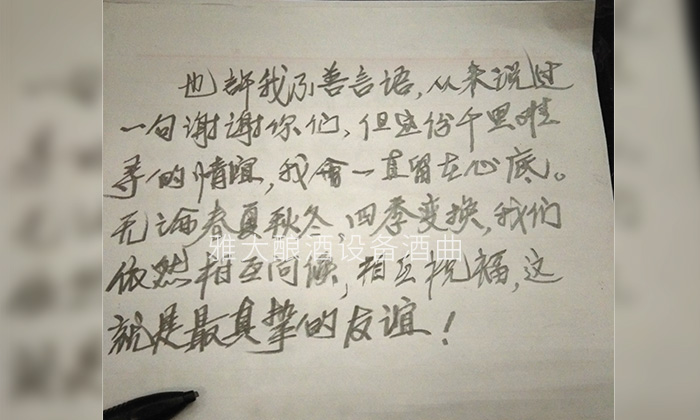 也许我不善言语,从来说过
一句谢谢你们,但这份千里难
寻的情谊,我会一直留在心底。
无论春夏秋冬,四季变换,我们
雅大酿酒设备酒曲
依然相互问候,相互祝福,这
就是最真挚的友谊!